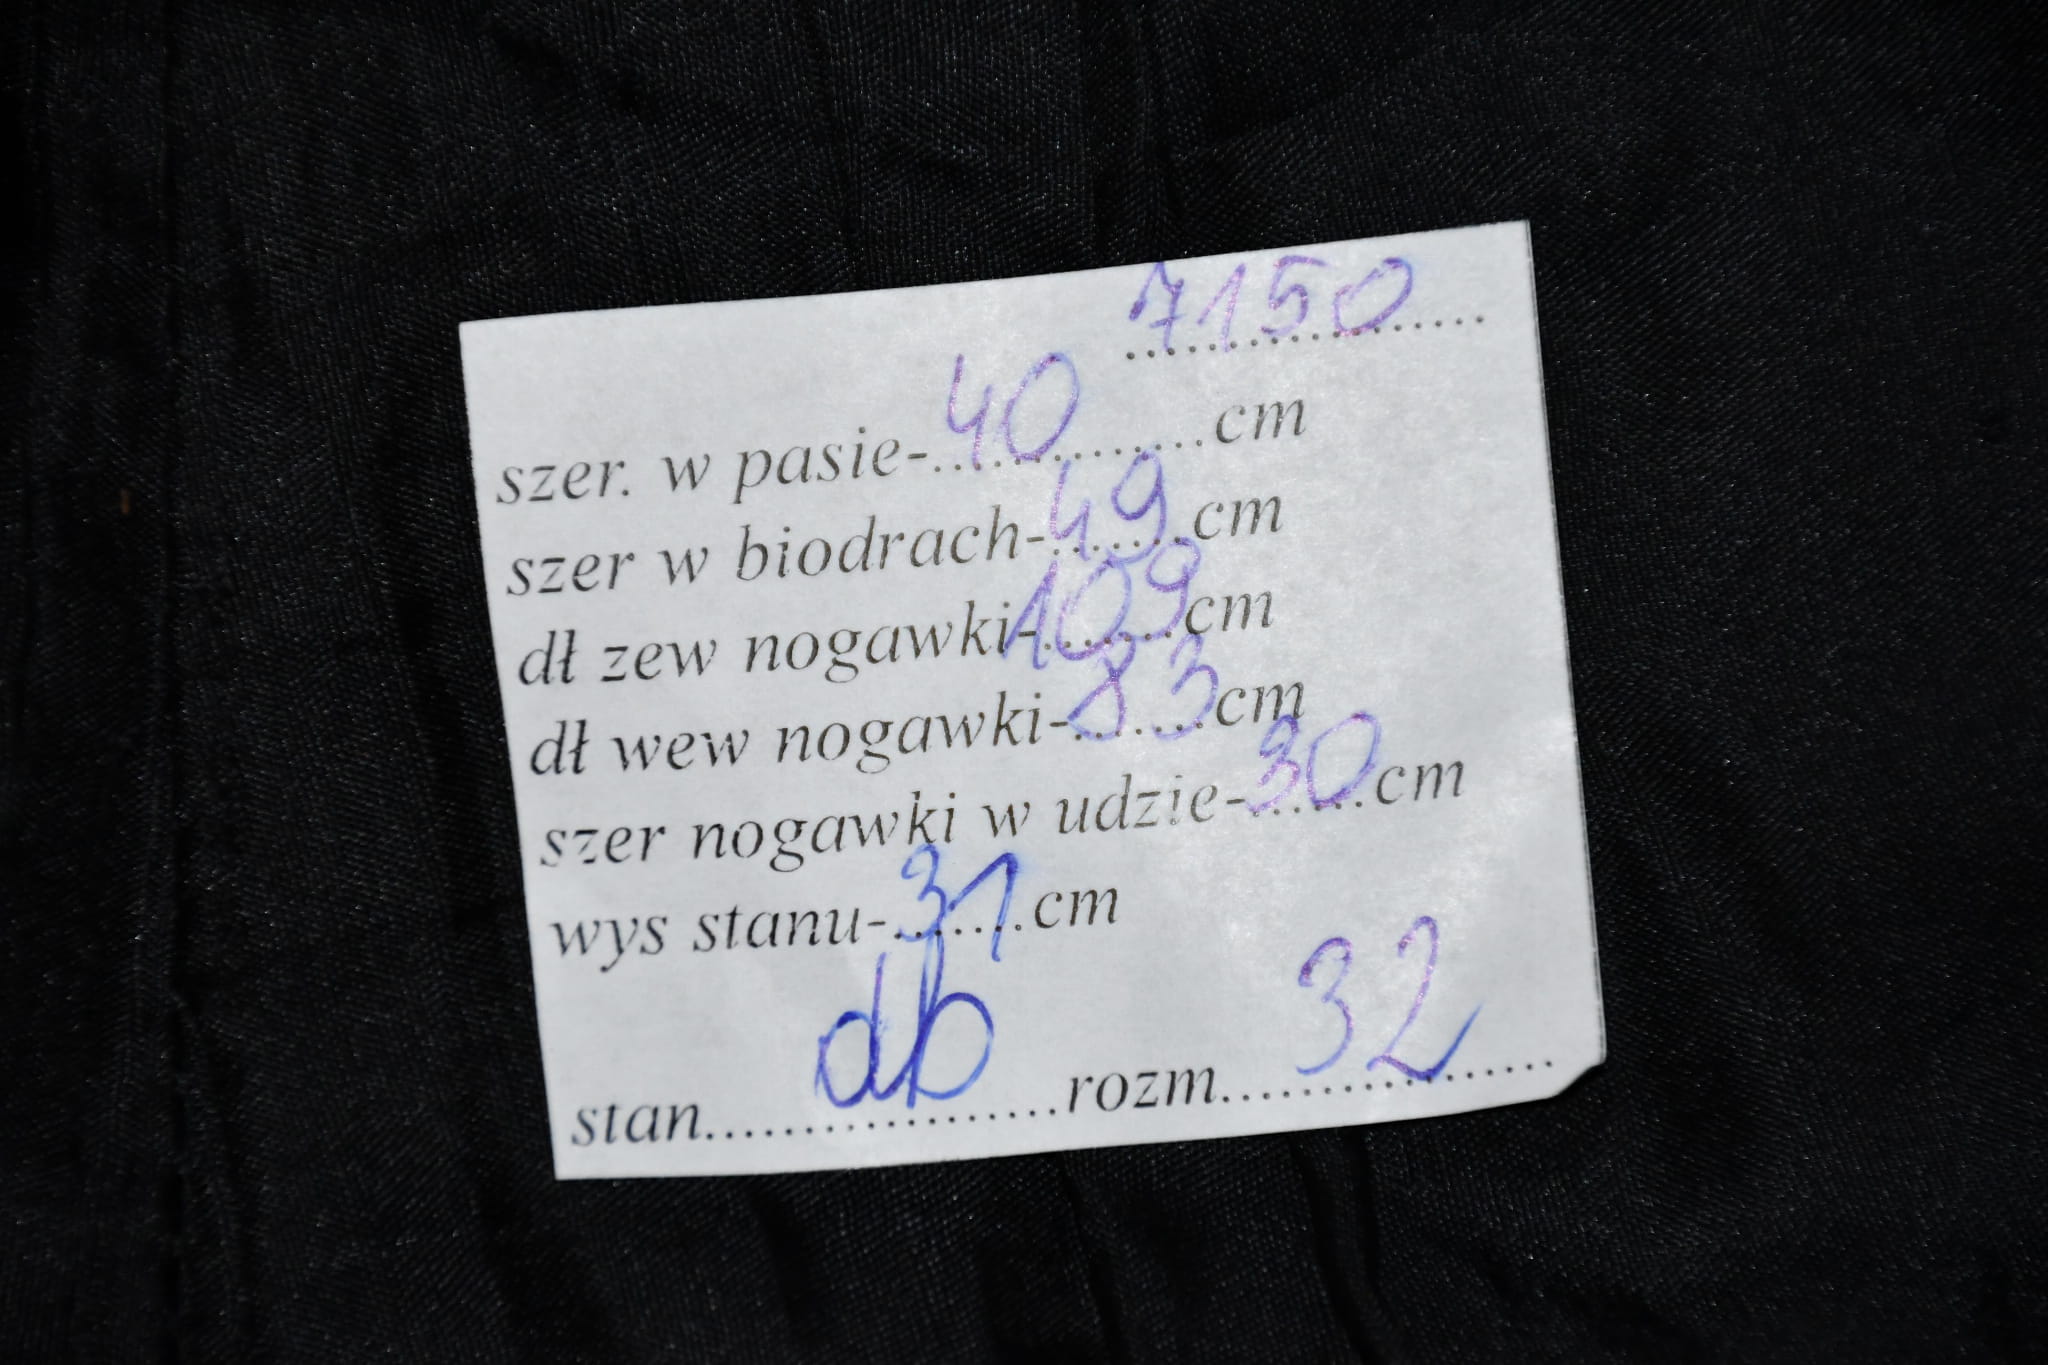 7150
szer. w pasie-40..............cm
szer w biodrach-49.......cm
dł zew nogawki-109.......cm
dł wew nogawki-83.......cm
szer nogawki w udzie-30......cm
wys stanu-31.......cm
stan....db....rozm....32....